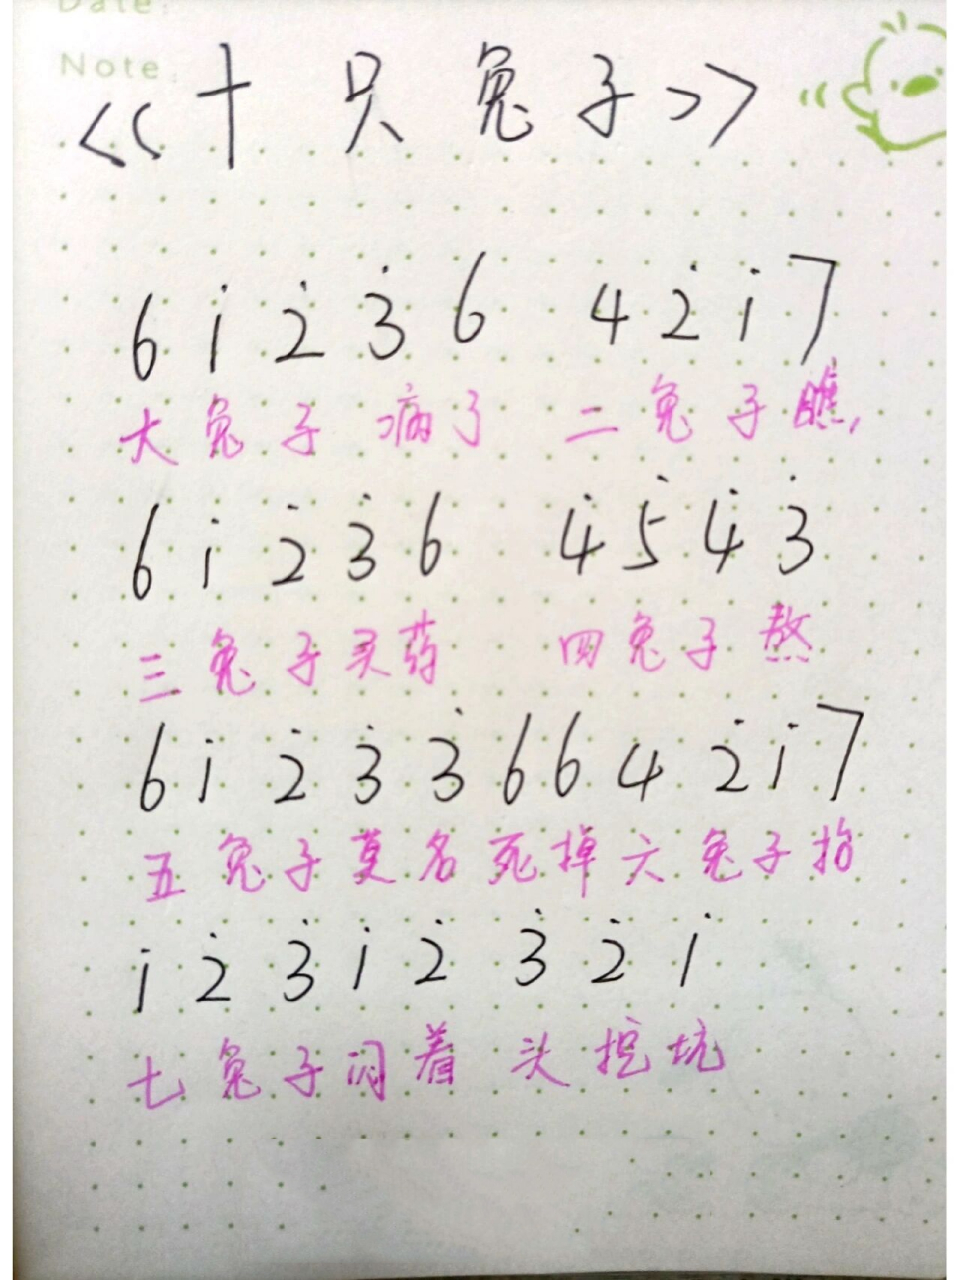 Date:
Note:
<<十只兔子>>
6 1̇ 2̇ 3̇ 6 4 2̇ 1̇ 7
大兔子病了 二兔子瞧,
6 1̇ 2̇ 3̇ 6 4̇ 5̇ 4̇ 3̇
三兔子买药 四兔子熬
6 1̇ 2̇ 3̇ 3̇ 6 6 4 2̇ 1̇ 7
五兔子莫名死掉六兔子抬
1̇ 2̇ 3̇ 1̇ 2̇ 3̇ 2̇ 1̇
七兔子闪着 头挖坑